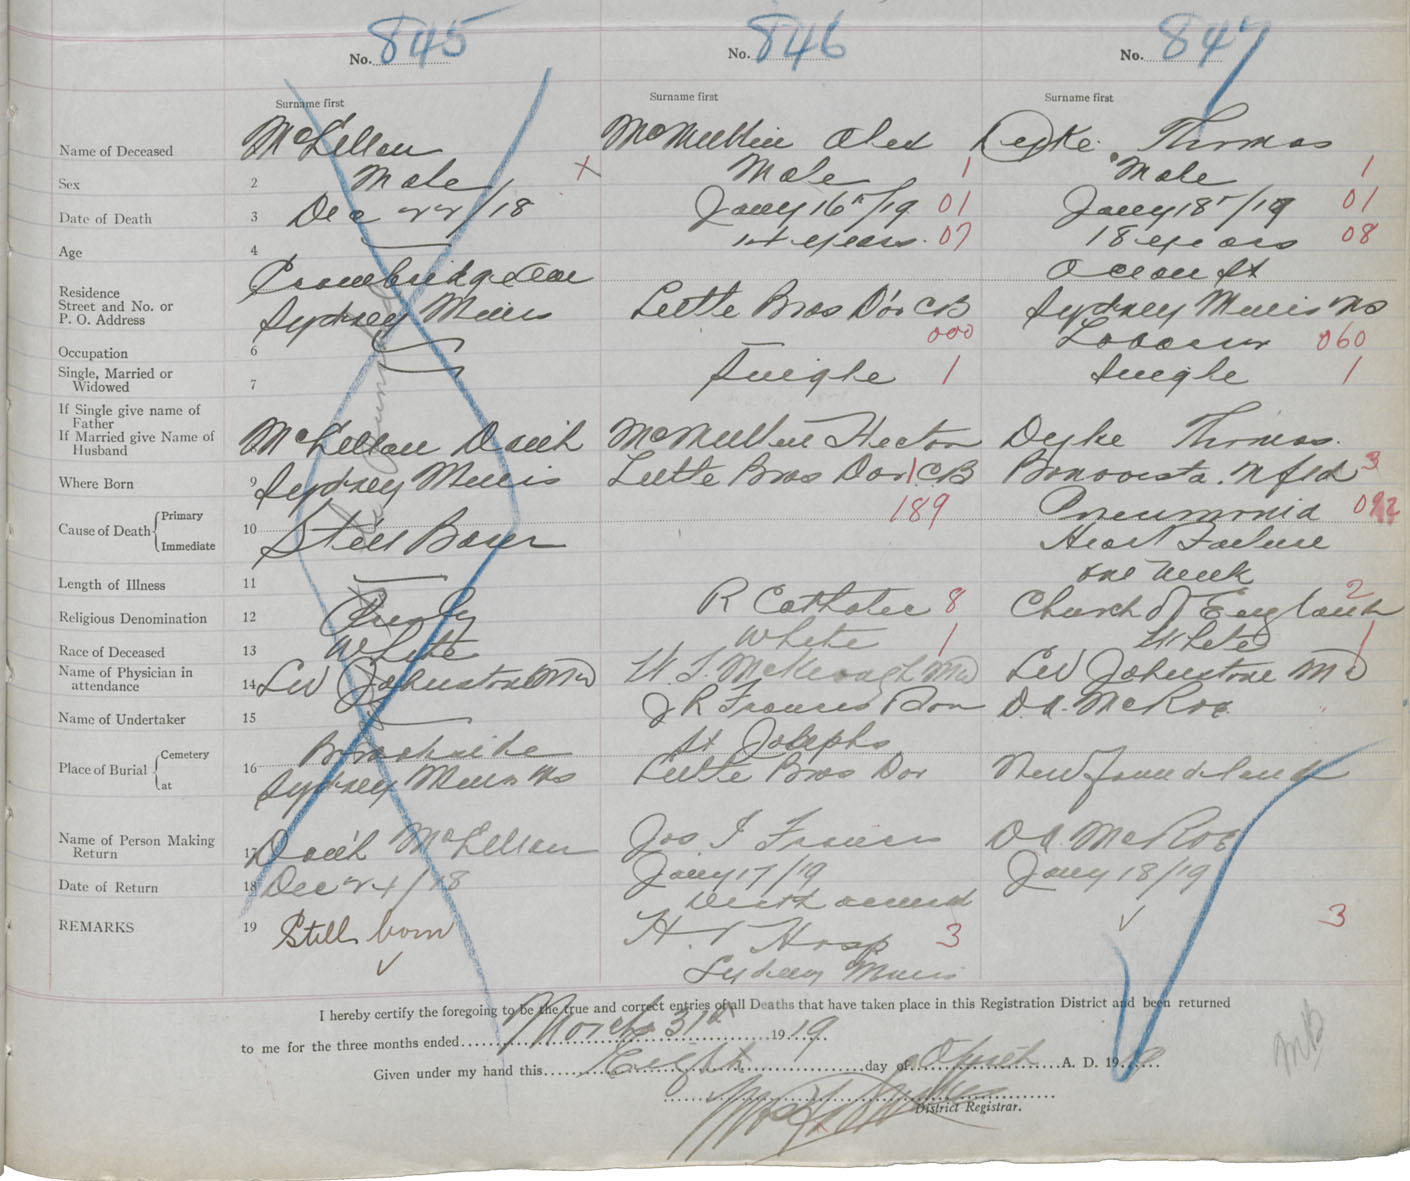 No. 845 No. 846 No. 847
Surname first Surname first Surname first
Name of Deceased McLellan McMullin Alex Dyke Thomas
Sex 2 Male X Male 1 Male 1
Date of Death 3 Dec 22/18 Jany 16th/19 01 Jany 18th/19 01
Age 4 — 14 years. 07 18 years 08
Ocean St
Residence
Street and No. or
P. O. Address Sydney Mines Little Bras D'or CB Sydney Mines NS
Occupation 6 000 Laborer 060
Single, Married or
Widowed 7 Single 1 Single 1
If Single give name of
Father
If Married give Name of
Husband McLellan Danl McMullin Hector Dyke Thomas.
Where Born 9 Sydney Mines Little Bras Dor CB 1 Bonavista. Nfld 3
Cause of Death Primary 189 Pneumonia
Immediate 10 Still Born Heart Failure
Length of Illness 11 — one week
Religious Denomination 12 R Catholic 8 Church of England 2
Race of Deceased 13 White White 1 White 1
Name of Physician in
attendance 14 LW Johnstone MD MD LW Johnstone MD
Name of Undertaker 15 — J R Francis D.A. McRae
Place of Burial Cemetery Brookside St Josephs
at 16 Sydney Mines NS Little Bras Dor Newfoundland
Name of Person Making
Return 17 Danl McLellan Jos I Francis D.A. McRae
Date of Return 18 Dec 24/18 Jany 17/19 Jany 18/19
Death occurred
REMARKS 19 Still born H. Hosp 3 3
Sydney Mines
I hereby certify the foregoing to be the true and correct entries of all Deaths that have taken place in this Registration District and been returned
to me for the three months ended March 31st 1919
Given under my hand this Eight day of April A. D. 1919
District Registrar.
MB